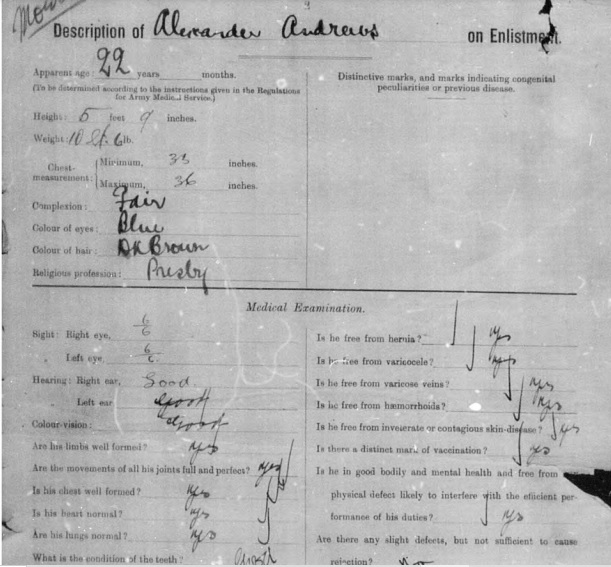 Description of Alexander Andrews on Enlistment.
Apparent age: 22 years months.
(To be determined according to the instructions given in the Regulations
for Army Medical Service.)
Height: 5 feet 9 inches.
Weight: 10 St. 6 lb.
Chest-
measurement:
Minimum, 33 inches.
Maximum, 36 inches.
Complexion: Fair
Colour of eyes: Blue
Colour of hair: Dk Brown
Religious profession: Presby
Distinctive marks, and marks indicating congenital
peculiarities or previous disease.
Medical Examination.
Sight: Right eye, 6/6
" Left eye, 6/6
Hearing: Right ear, Good
" Left ear Good
Colour-vision: Good
Are his limbs well formed? yes
Are the movements of all his joints full and perfect? yes
Is his chest well formed? yes
Is his heart normal? yes
Are his lungs normal? yes
What is the condition of the teeth?
Is he free from hernia? yes
Is he free from varicocele? yes
Is he free from varicose veins? yes
Is he free from hæmorrhoids? yes
Is he free from inveterate or contagious skin-disease? yes
Is there a distinct mark of vaccination? yes
Is he in good bodily and mental health and free from
physical defect likely to interfere with the efficient per-
formance of his duties? yes
Are there any slight defects, but not sufficient to cause
rejection?